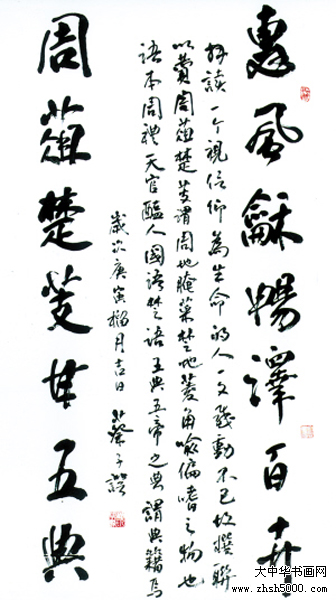 惠風龢暢澤百卉
拜讀一个視信仰為生命的人一文感動不已故撰聯
以贊周葅楚芰謂周地腌菜楚地菱角喻偏嗜之物也
語本周禮天官醢人國語楚語五典五帝之典謂典籍焉
歲次庚寅榴月吉日 蔡子諤
周葅楚芰甘五典
大中华书画网
www.zhsh5000.com